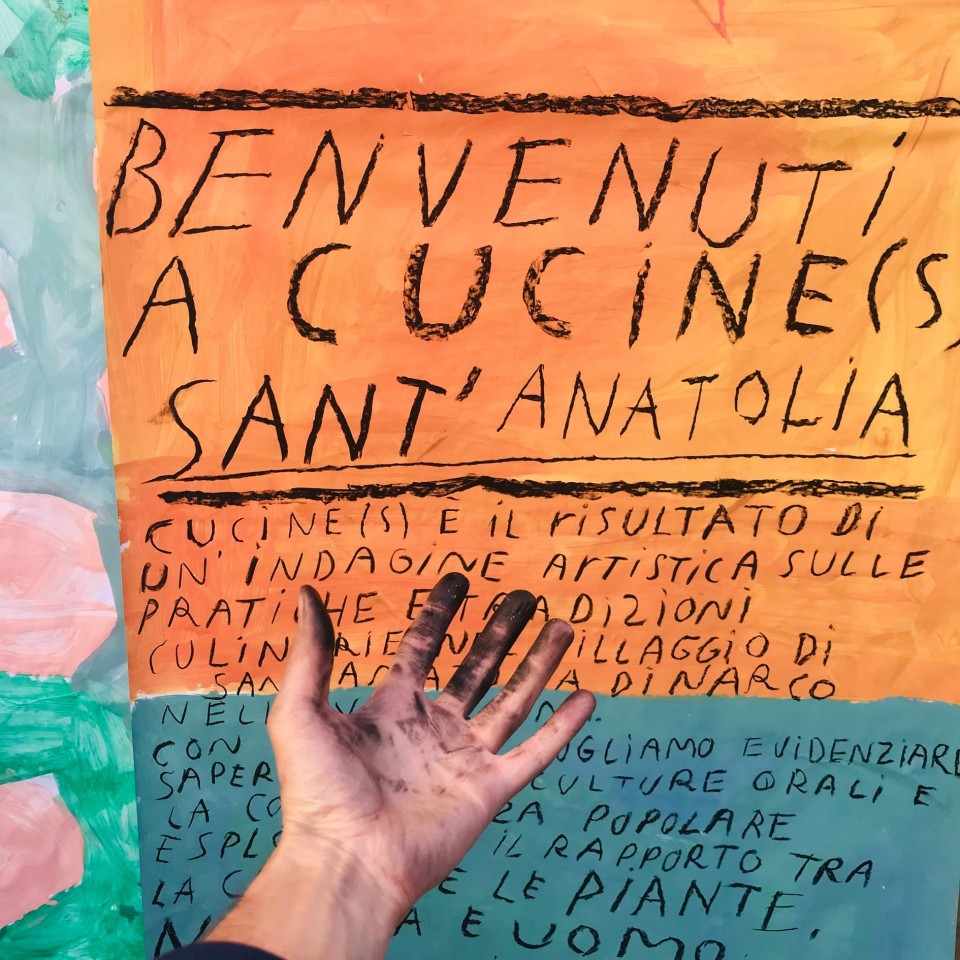 BENVENUTI
A CUCINE(S)
SANT' ANATOLIA
CUCINE(S) È IL RISULTATO DI
UN' INDAGINE ARTISTICA SULLE
PRATICHE E TRADIZIONI
CULINARIE NEL VILLAGGIO DI
DI NARCO
CON VOGLIAMO EVIDENZIARE
CULTURE ORALI E
LA POPOLARE
IL RAPPORTO TRA
LA E LE PIANTE,
E UOMO